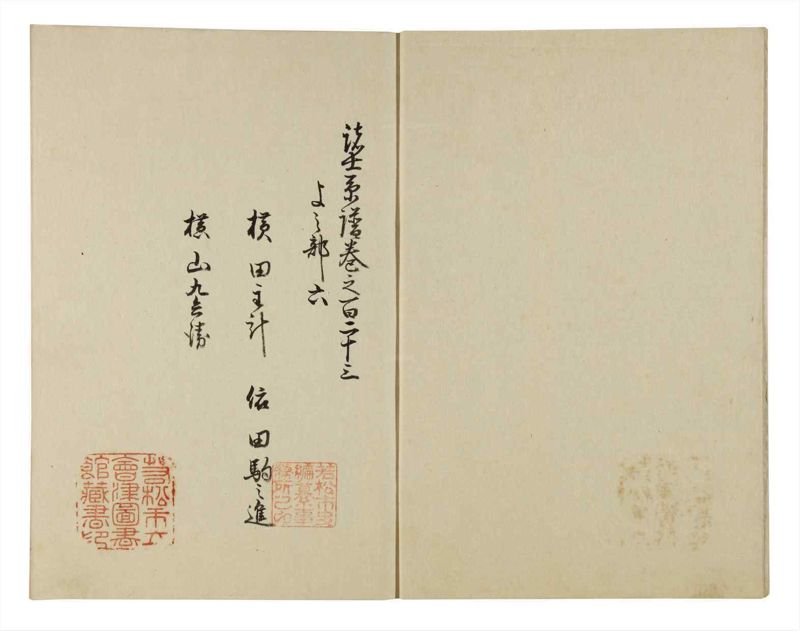 諸士系譜巻之百二十三
よ之部六
横田主計　依田駒之進
横山九兵衛
若松市立
會津圖書
館藏書印